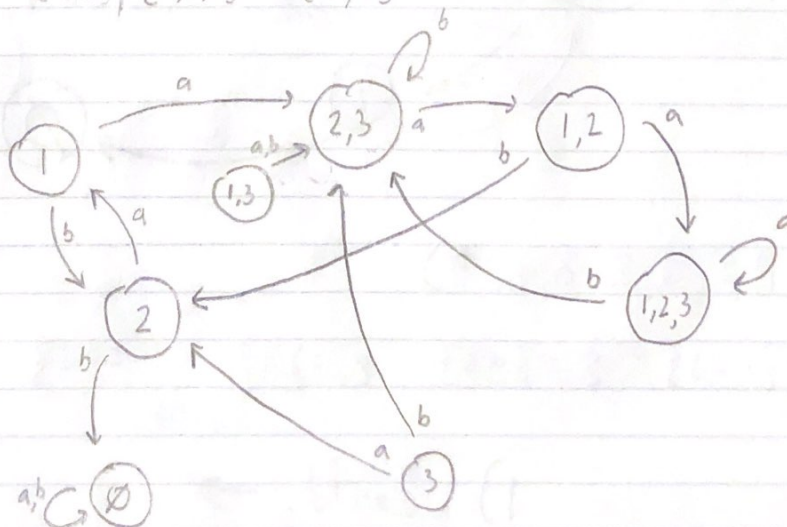 b
a
2,3
a
1,2
a
1
a,b
b
1,3
a
b
a
b
1,2,3
2
b
b
a
3
a,b
∅